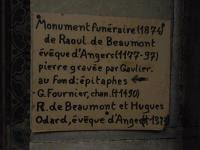 Monument funéraire (1874)
de Raoul de Beaumont
évêque d'Angers (1177-97)
pierre gravée par Gaulier.
au fond: épitaphes ←
-G. Fournier, chan. († 1190)
R. de Beaumont et Hugues
Odard, évêque d'Angers († 1323)